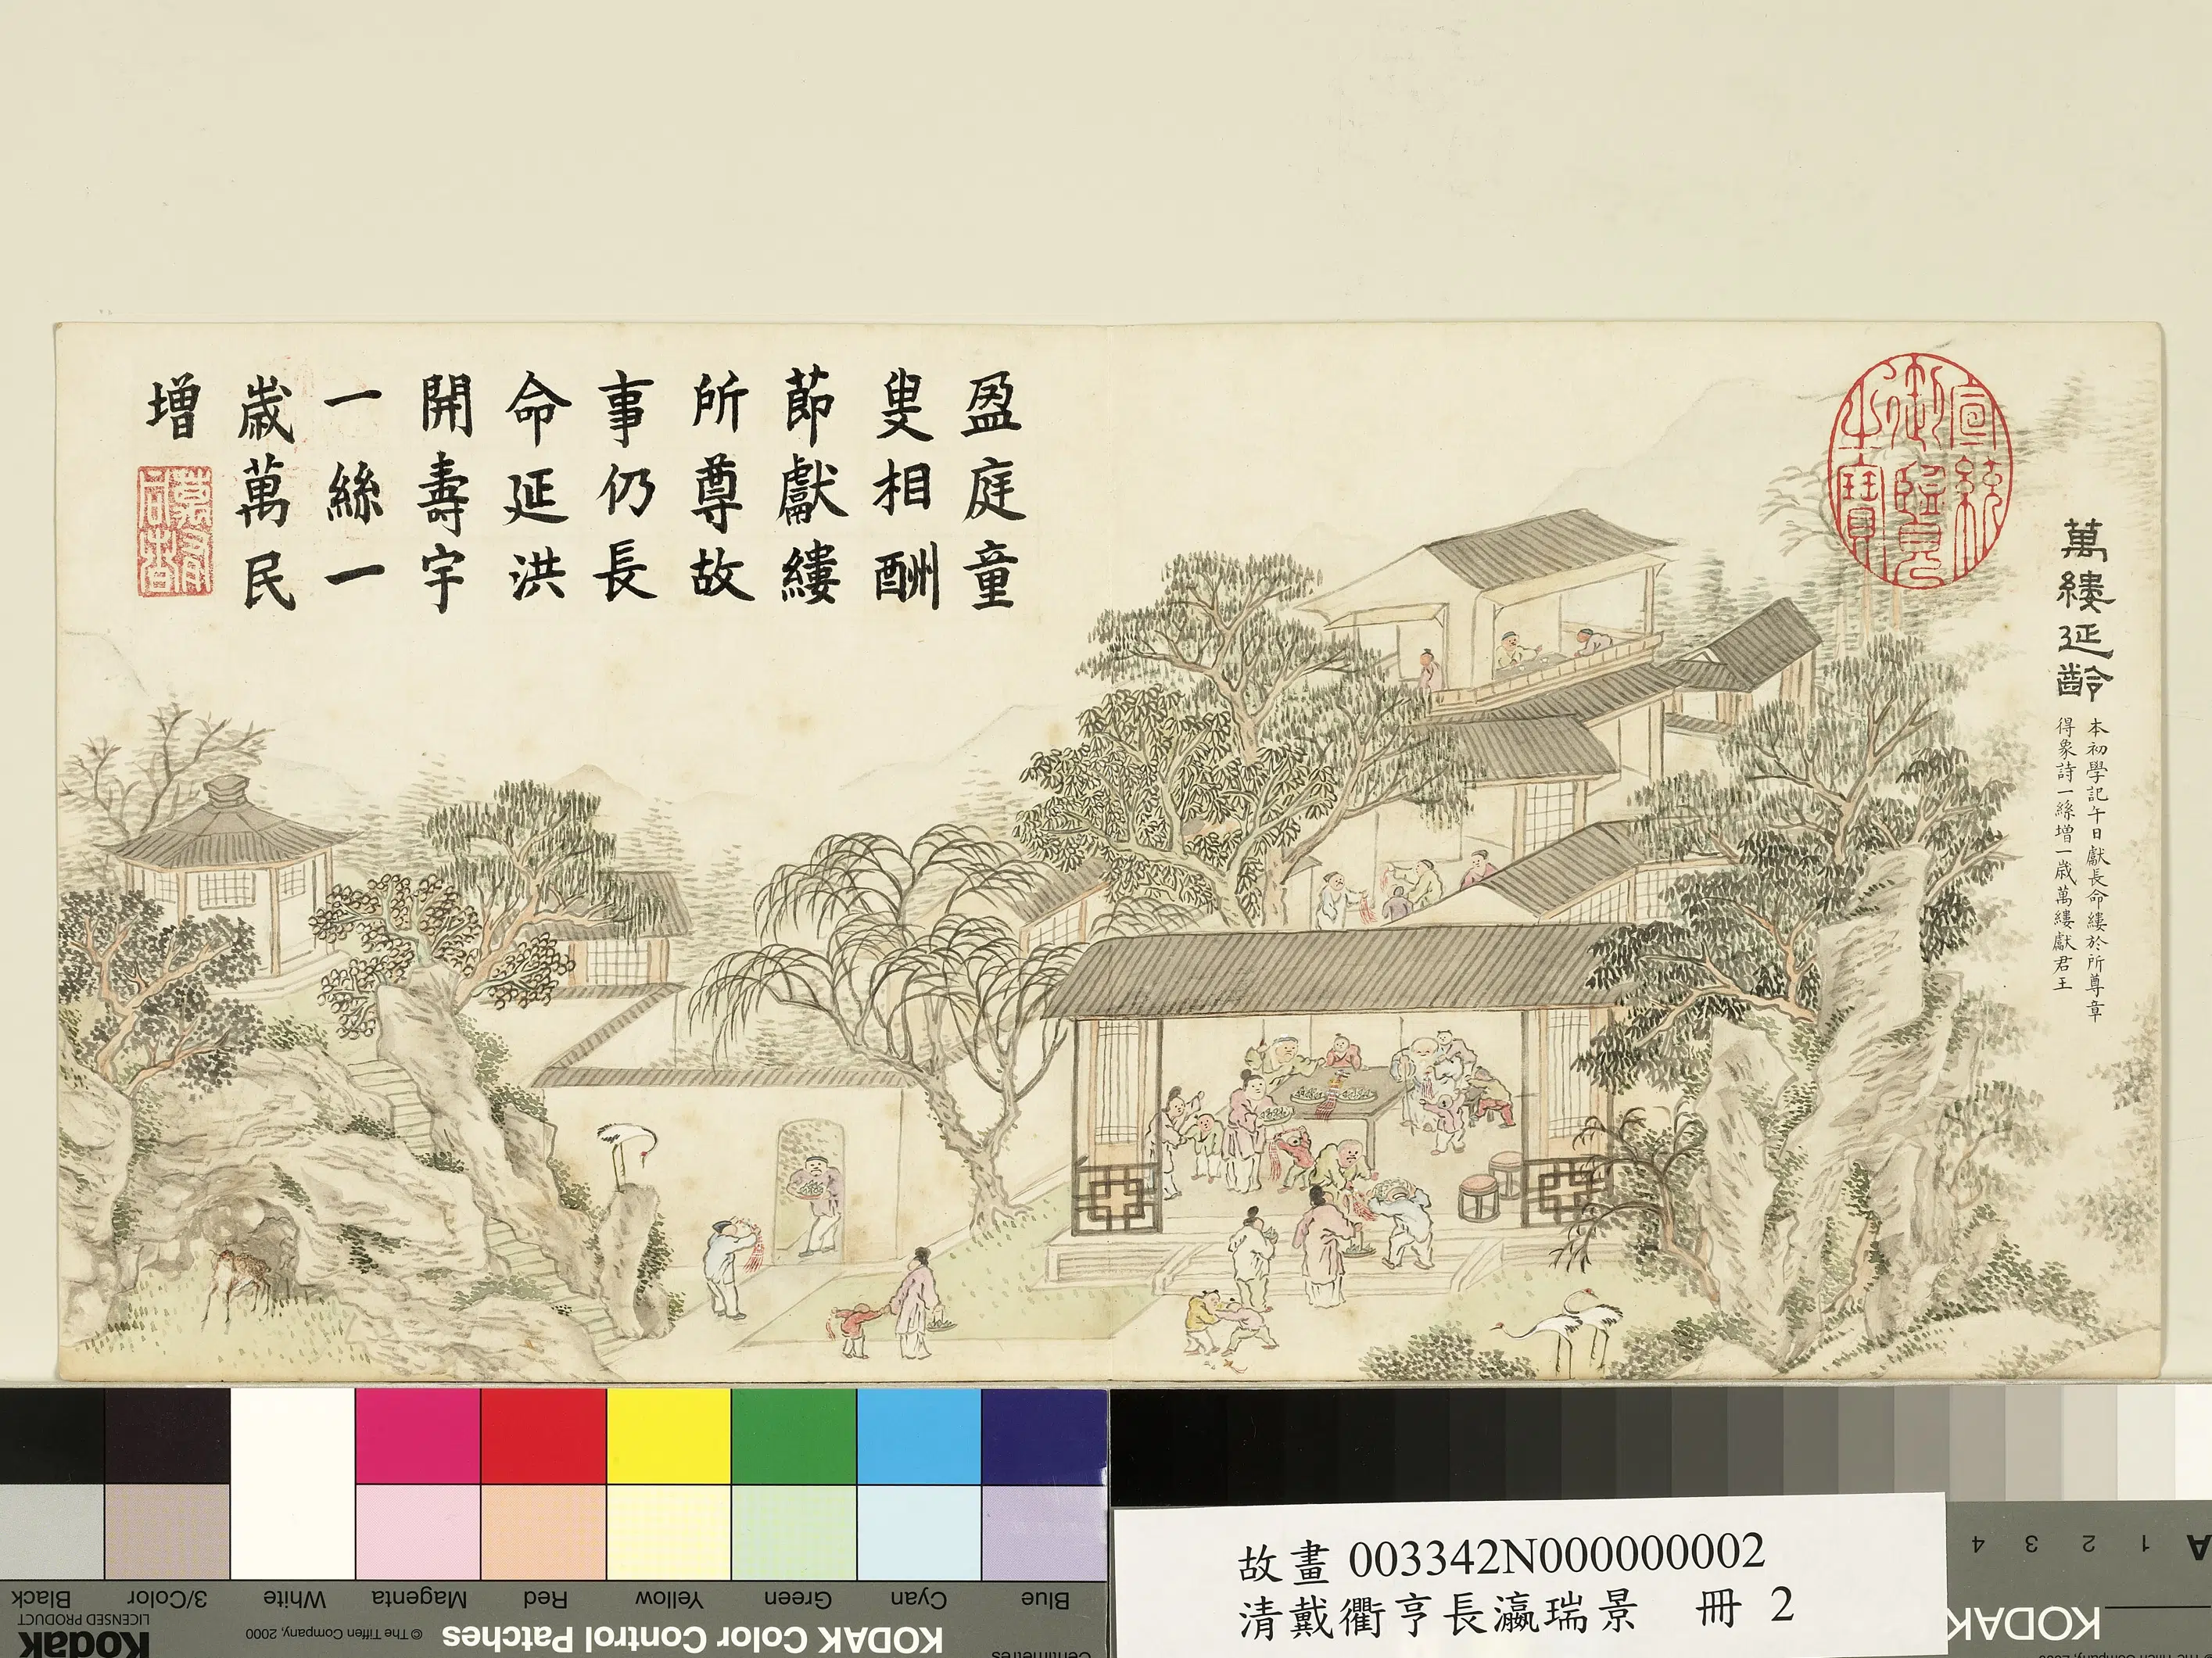 萬縷延齡
本初學記午日獻長命縷於所尊章
得象詩一絲增一歳萬縷獻君王
宣統御覽之寶
盈庭童
叟相酬
莭獻縷
所尊故
事仍長
命延洪
開壽宇
一絲一
歳萬民
增
故畫 003342N000000002
清戴衢亨長瀛瑞景 冊 2
KODAK
A 1 2 3 4
Centimetres
Blue Cyan Green Yellow Red Magenta White 3/Color Black
KODAK Color Control Patches
© The Tiffen Company, 2000
Kodak
LICENSED PRODUCT